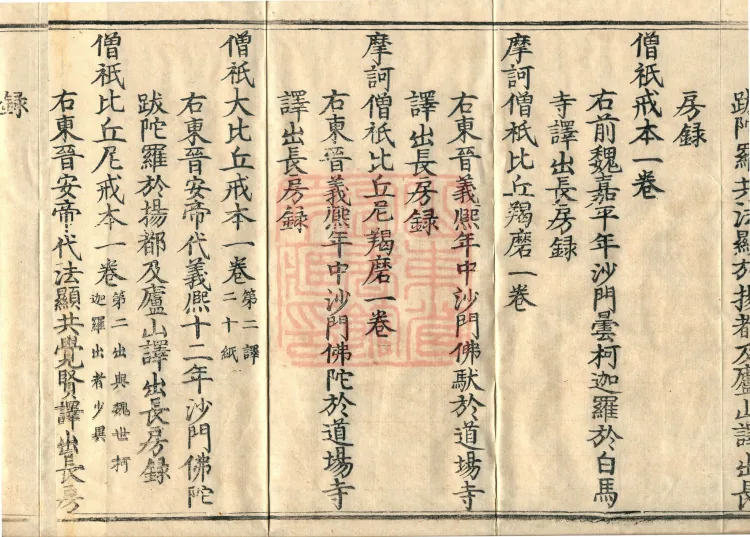 跋陀羅共法顯於揚都及廬山譯出長
房録
僧祇戒本一卷
右前魏嘉平年沙門曇柯迦羅於白馬
寺譯出長房録
摩訶僧祇比丘羯磨一卷
右東晉義熙年中沙門佛馱於道場寺
譯出長房録
摩訶僧祇比丘尼羯磨一卷
右東晉義熙年中沙門佛陀於道場寺
譯出長房録
僧祇大比丘戒本一卷第二譯
二十紙
右東晉安帝代義熙十二年沙門佛陀
跋陀羅於揚都及廬山譯出長房録
僧祇比丘尼戒本一卷第二出與魏世柯
迦羅出者少異
右東晉安帝代法顯共覺賢譯出長房
録